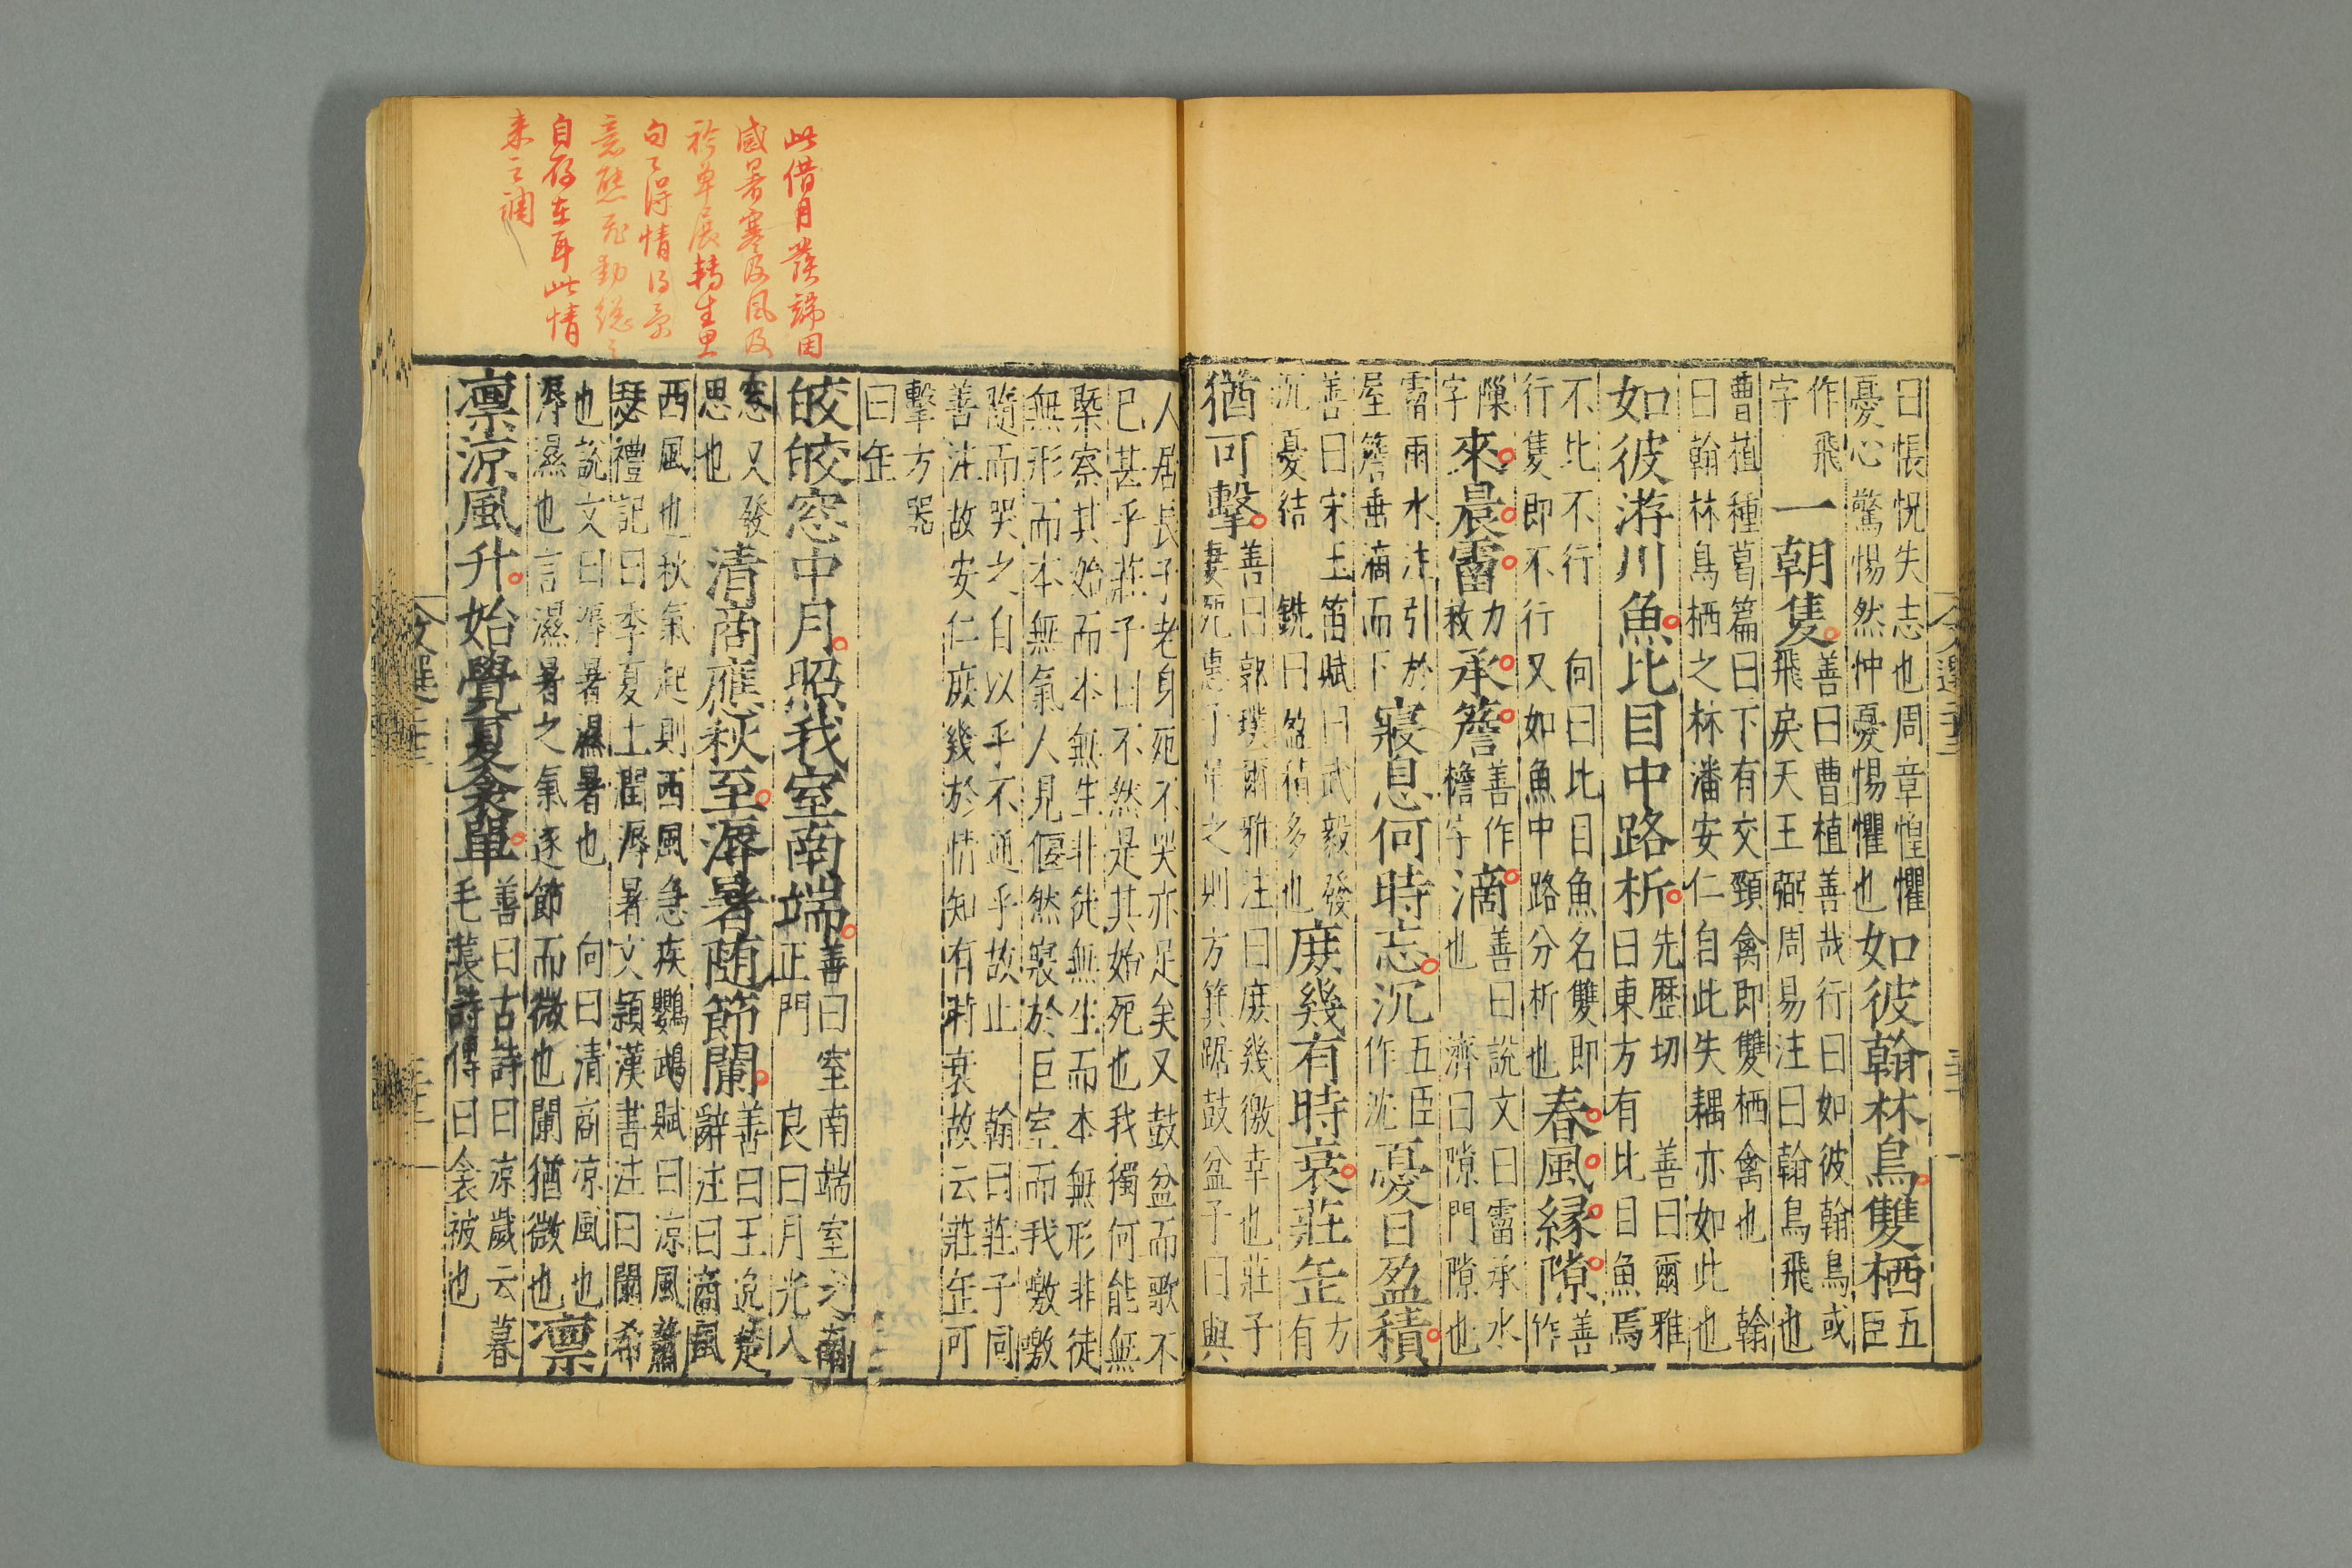 曰悵怳失志也周章惶懼
憂心驚惕然忡憂惕懼也
如彼翰林鳥雙栖
五臣
作飛字
一朝隻
善曰曹植善哉行曰如彼翰鳥或
飛戾天王弼周易注曰翰鳥飛也
曹植種葛篇曰下有交頸禽即雙栖禽也 翰
曰翰林鳥栖之林潘安仁自此失耦亦如此也
如彼游川魚比目中路析
先歷切 善曰爾雅
曰東方有比目魚焉
不比不行 向曰比目魚名雙即
行隻即不行又如魚中路分析也
春風緣隙
善作
隟字
來晨霤
力救
承簷
善作檐字
滴
善曰說文曰霤承水
也 濟曰隙門隙也
霤雨水注引於
屋簷垂滴而下
寢息何時忘沉
五臣作沈
憂日盈積
善曰宋玉笛賦曰武毅發
沉憂結 銑曰盈積多也
庶幾有時衰莊缶
方有
猶可擊
善曰郭璞爾雅注曰庶幾徼幸也莊子
妻死惠子弔之則方箕踞鼓盆子曰與
人居長子老身死不哭亦足矣又鼓盆而歌不
已甚乎莊子曰不然是其始死也我獨何能無
槩察其始而本無生非徒無生而本無形非徒
無形而本無氣人見偃然寢於巨室而我噭噭
隨而哭之自以乎不通乎故止 翰曰莊子同
善注故安仁庶幾於情知有時衰故云莊缶可
擊方器
曰缶
皎皎窓中月照我室南端
善曰室南端室之南
正門 良曰月光入
窓又發
思也
清商應秋至溽暑隨節闌
善曰王逸楚
辭注曰商風
西風也秋氣起則西風急疾鸚鵡賦曰涼風蕭
瑟禮記曰季夏土潤溽暑文穎漢書注曰闌希
也說文曰溽暑濕暑也 向曰清商涼風也
溽濕也言濕暑之氣逐節而微也闌猶微也
凛
凛涼風升始覺夏衾單
善曰古詩曰凉歲云暮
毛萇詩傳曰衾被也
此借月發端因
感暑寒及風及
衾單展轉生思
句〻得情得景
意態飛動總〻
自存在耳此情
来之調